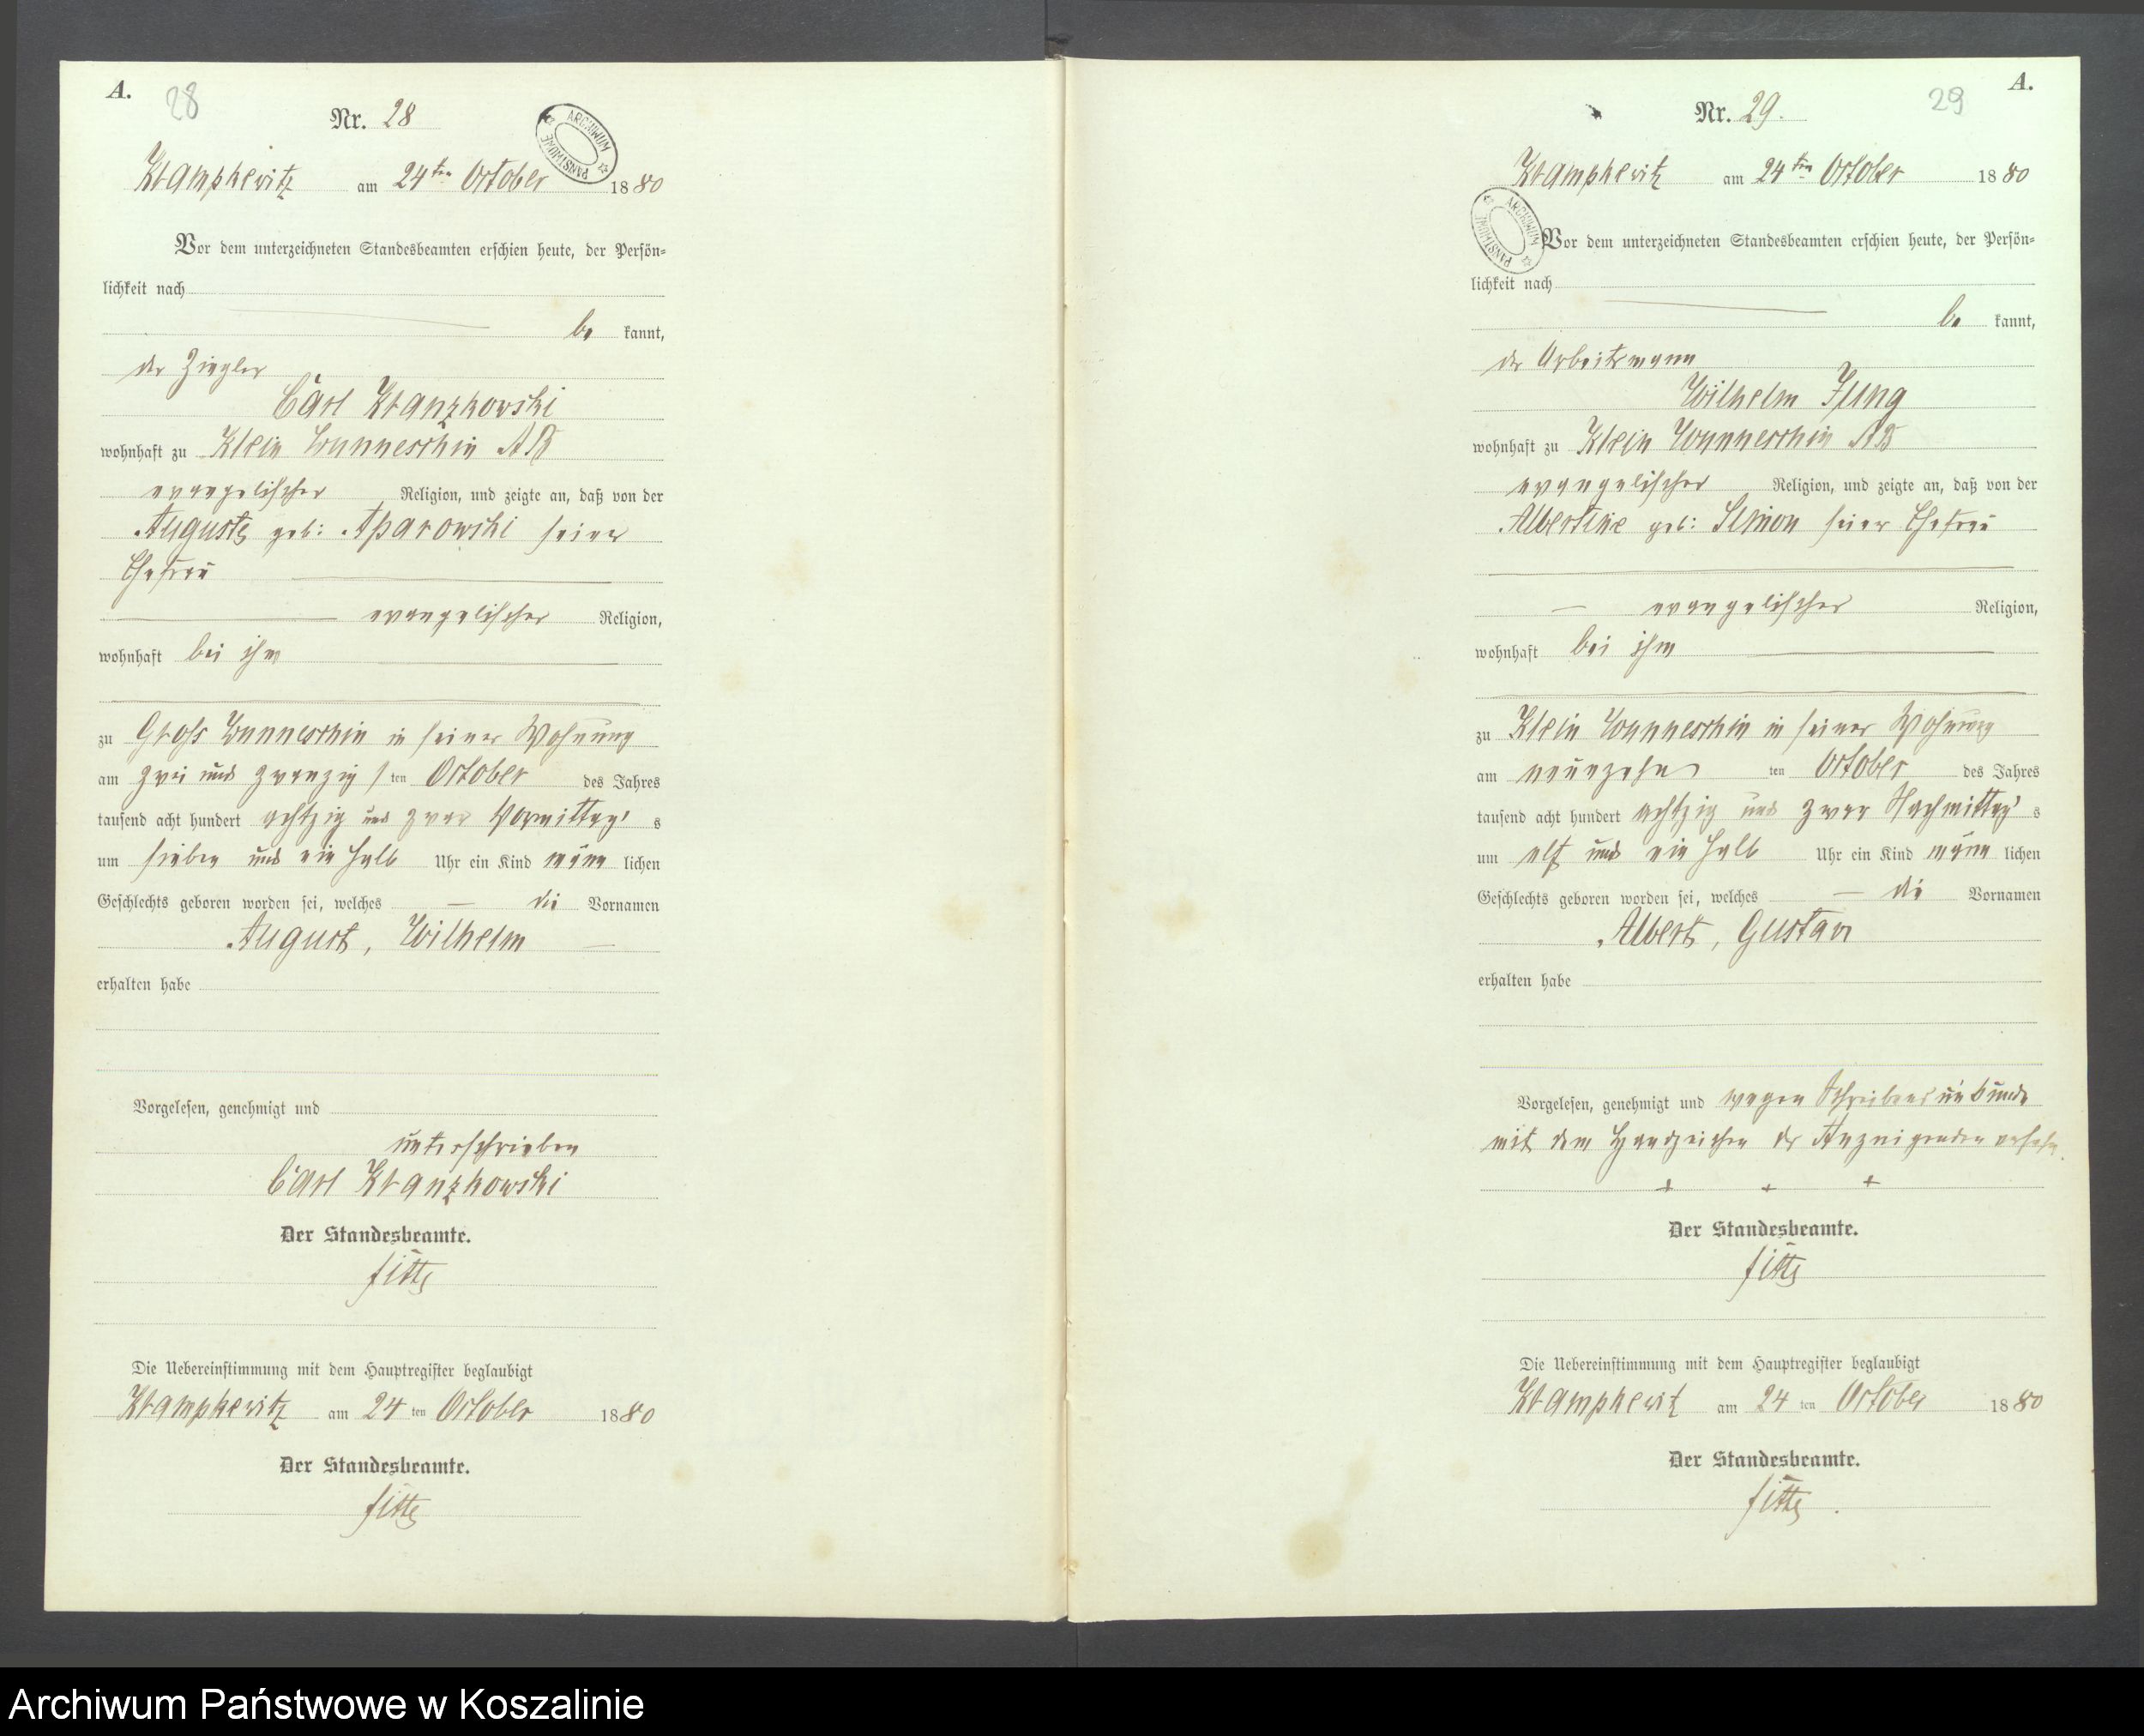 A.
28
Nr. 28
ARCHIWUM PAŃSTWOWE
Krampkewitz am 24ten October 1880
Vor dem unterzeichneten Standesbeamten erschien heute, der Persön-
lichkeit nach
be kannt,
der Ziegler
Carl Kranzkowski
wohnhaft zu Klein Wunneschin AB
evangelischer Religion, und zeigte an, daß von der
Auguste geb: Aparowski seiner
Ehefrau
evangelischer Religion,
wohnhaft bei ihm
zu Gross Wunneschin in seiner Wohnung
am zwei und zwanzig sten October des Jahres
tausend acht hundert achtzig und zwar Vormittag's
um sieben und ein halb Uhr ein Kind männ lichen
Geschlechts geboren worden sei, welches — die Vornamen
August, Wilhelm —
erhalten habe
Vorgelesen, genehmigt und
unterschrieben
Carl Kranzkowski
Der Standesbeamte.
Die Uebereinstimmung mit dem Hauptregister beglaubigt
Krampkewitz am 24 ten October 1880
Der Standesbeamte.
A.
29
Nr. 29.
Krampkewitz am 24ten October 1880
ARCHIWUM PAŃSTWOWE
Vor dem unterzeichneten Standesbeamten erschien heute, der Persön-
lichkeit nach
be kannt,
der Arbeitsmann
Wilhelm Jung
wohnhaft zu Klein Wunneschin AB
evangelischer Religion, und zeigte an, daß von der
Albertine geb: Simon seiner Ehefrau
— evangelischer Religion,
wohnhaft bei ihm
zu Klein Wunneschin in seiner Wohnung
am neunzehn ten October des Jahres
tausend acht hundert achtzig und zwar Nachmittag's
um elf und ein halb Uhr ein Kind männ lichen
Geschlechts geboren worden sei, welches — die Vornamen
Albert, Gustav
erhalten habe
Vorgelesen, genehmigt und wegen Schreibensunkunde
mit dem Handzeichen des Anzeigenden versehn.
+ + +
Der Standesbeamte.
Die Uebereinstimmung mit dem Hauptregister beglaubigt
Krampkewitz am 24 ten October 1880
Der Standesbeamte.
Archiwum Państwowe w Koszalinie